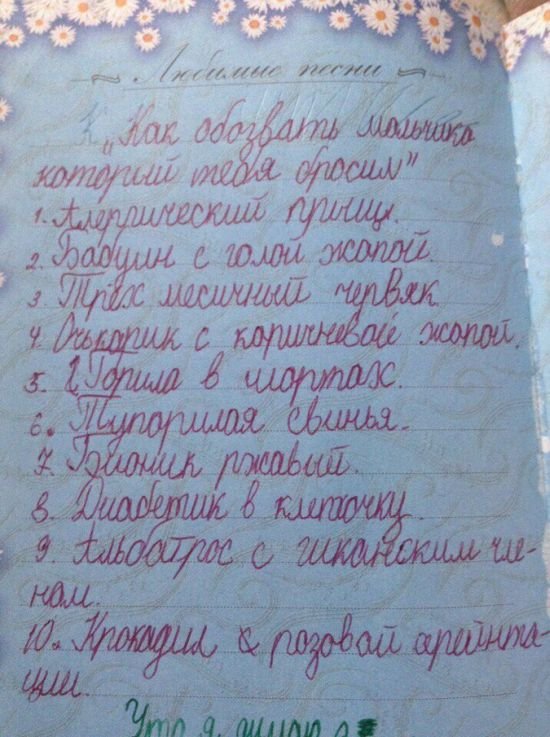 Любимые песни
"Как обозвать мальчика
который тебя бросил"
1. Алергический прищ.
2. Бабуин с голой жопой.
3. Трёх месичный червяк
4. Очькарик с коричневой жопой.
5. Горила в шортах.
6. Тупорилая свинья.
7. Бионик ржавый.
8. Диабетик в клеточку.
9. Альбатрос с гиканским чле-
ном.
10. Крокадил с розовой арейнта-
ции.
Что я думаю о